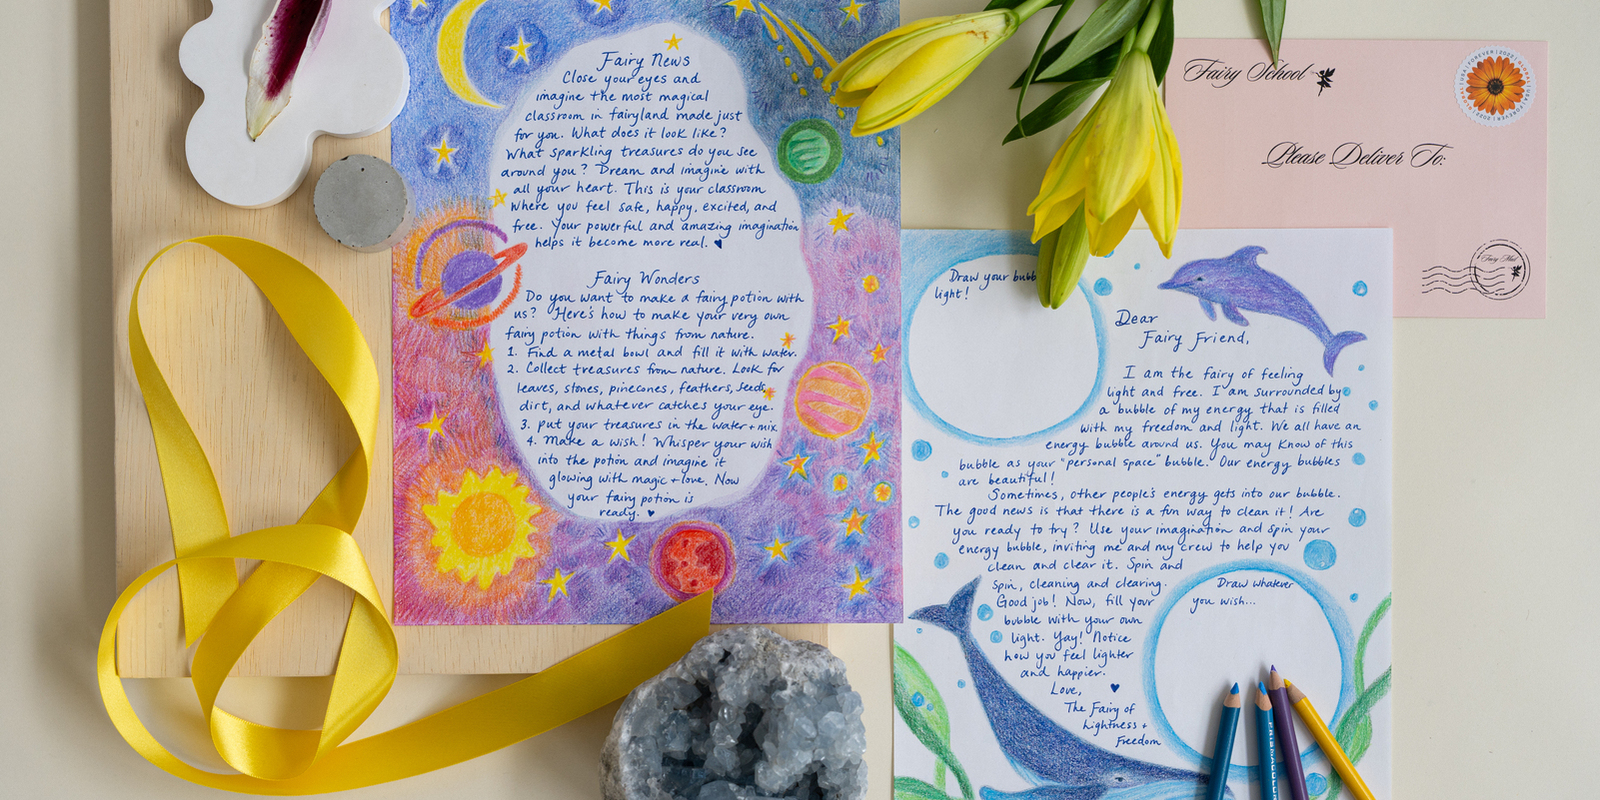 Fairy News
Close your eyes and
imagine the most magical
classroom in fairyland made just
for you. What does it look like?
What sparkling treasures do you see
around you? Dream and imagine with
all your heart. This is your classroom
where you feel safe, happy, excited, and
free. Your powerful and amazing imagination
helps it become more real. ♥
Fairy Wonders
Do you want to make a fairy potion with
us? Here's how to make your very own
fairy potion with things from nature.
1. Find a metal bowl and fill it with water.
2. Collect treasures from nature. Look for
leaves, stones, pinecones, feathers, seeds,
dirt, and whatever catches your eye.
3. put your treasures in the water + mix.
4. Make a wish! Whisper your wish
into the potion and imagine it
glowing with magic + love. Now
your fairy potion is
ready. ♥
Draw your bubb
light!
Dear
Fairy Friend,
I am the fairy of feeling
light and free. I am surrounded by
a bubble of my energy that is filled
with my freedom and light. We all have an
energy bubble around us. You may know of this
bubble as your "personal space" bubble. Our energy bubbles
are beautiful!
Sometimes, other people's energy gets into our bubble.
The good news is that there is a fun way to clean it! Are
you ready to try? Use your imagination and spin your
energy bubble, inviting me and my crew to help you
clean and clear it. Spin and
spin, cleaning and clearing.
Good job! Now, fill your
bubble with your own
light. Yay! Notice
how you feel lighter
and happier.
Love, ♥
The Fairy of
Lightness +
Freedom
Draw whatever
you wish...
Fairy School
Please Deliver To:
Fairy Mail